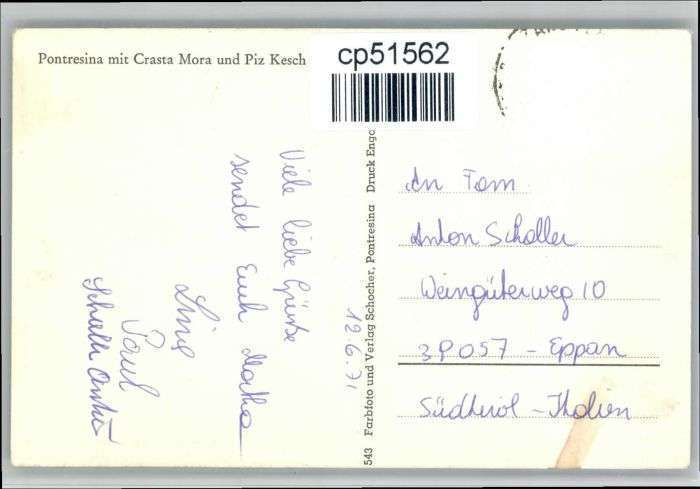 Pontresina mit Crasta Mora und Piz Kesch
cp51562
Viele liebe Grüße
sendet Euch Martha
Paul
12.6.71
543 Farbfoto und Verlag Schocher, Pontresina Druck Enge
An Fam.
Anton Schaller
Weingüterweg 10
39057 - Eppan
Südtirol - Italien